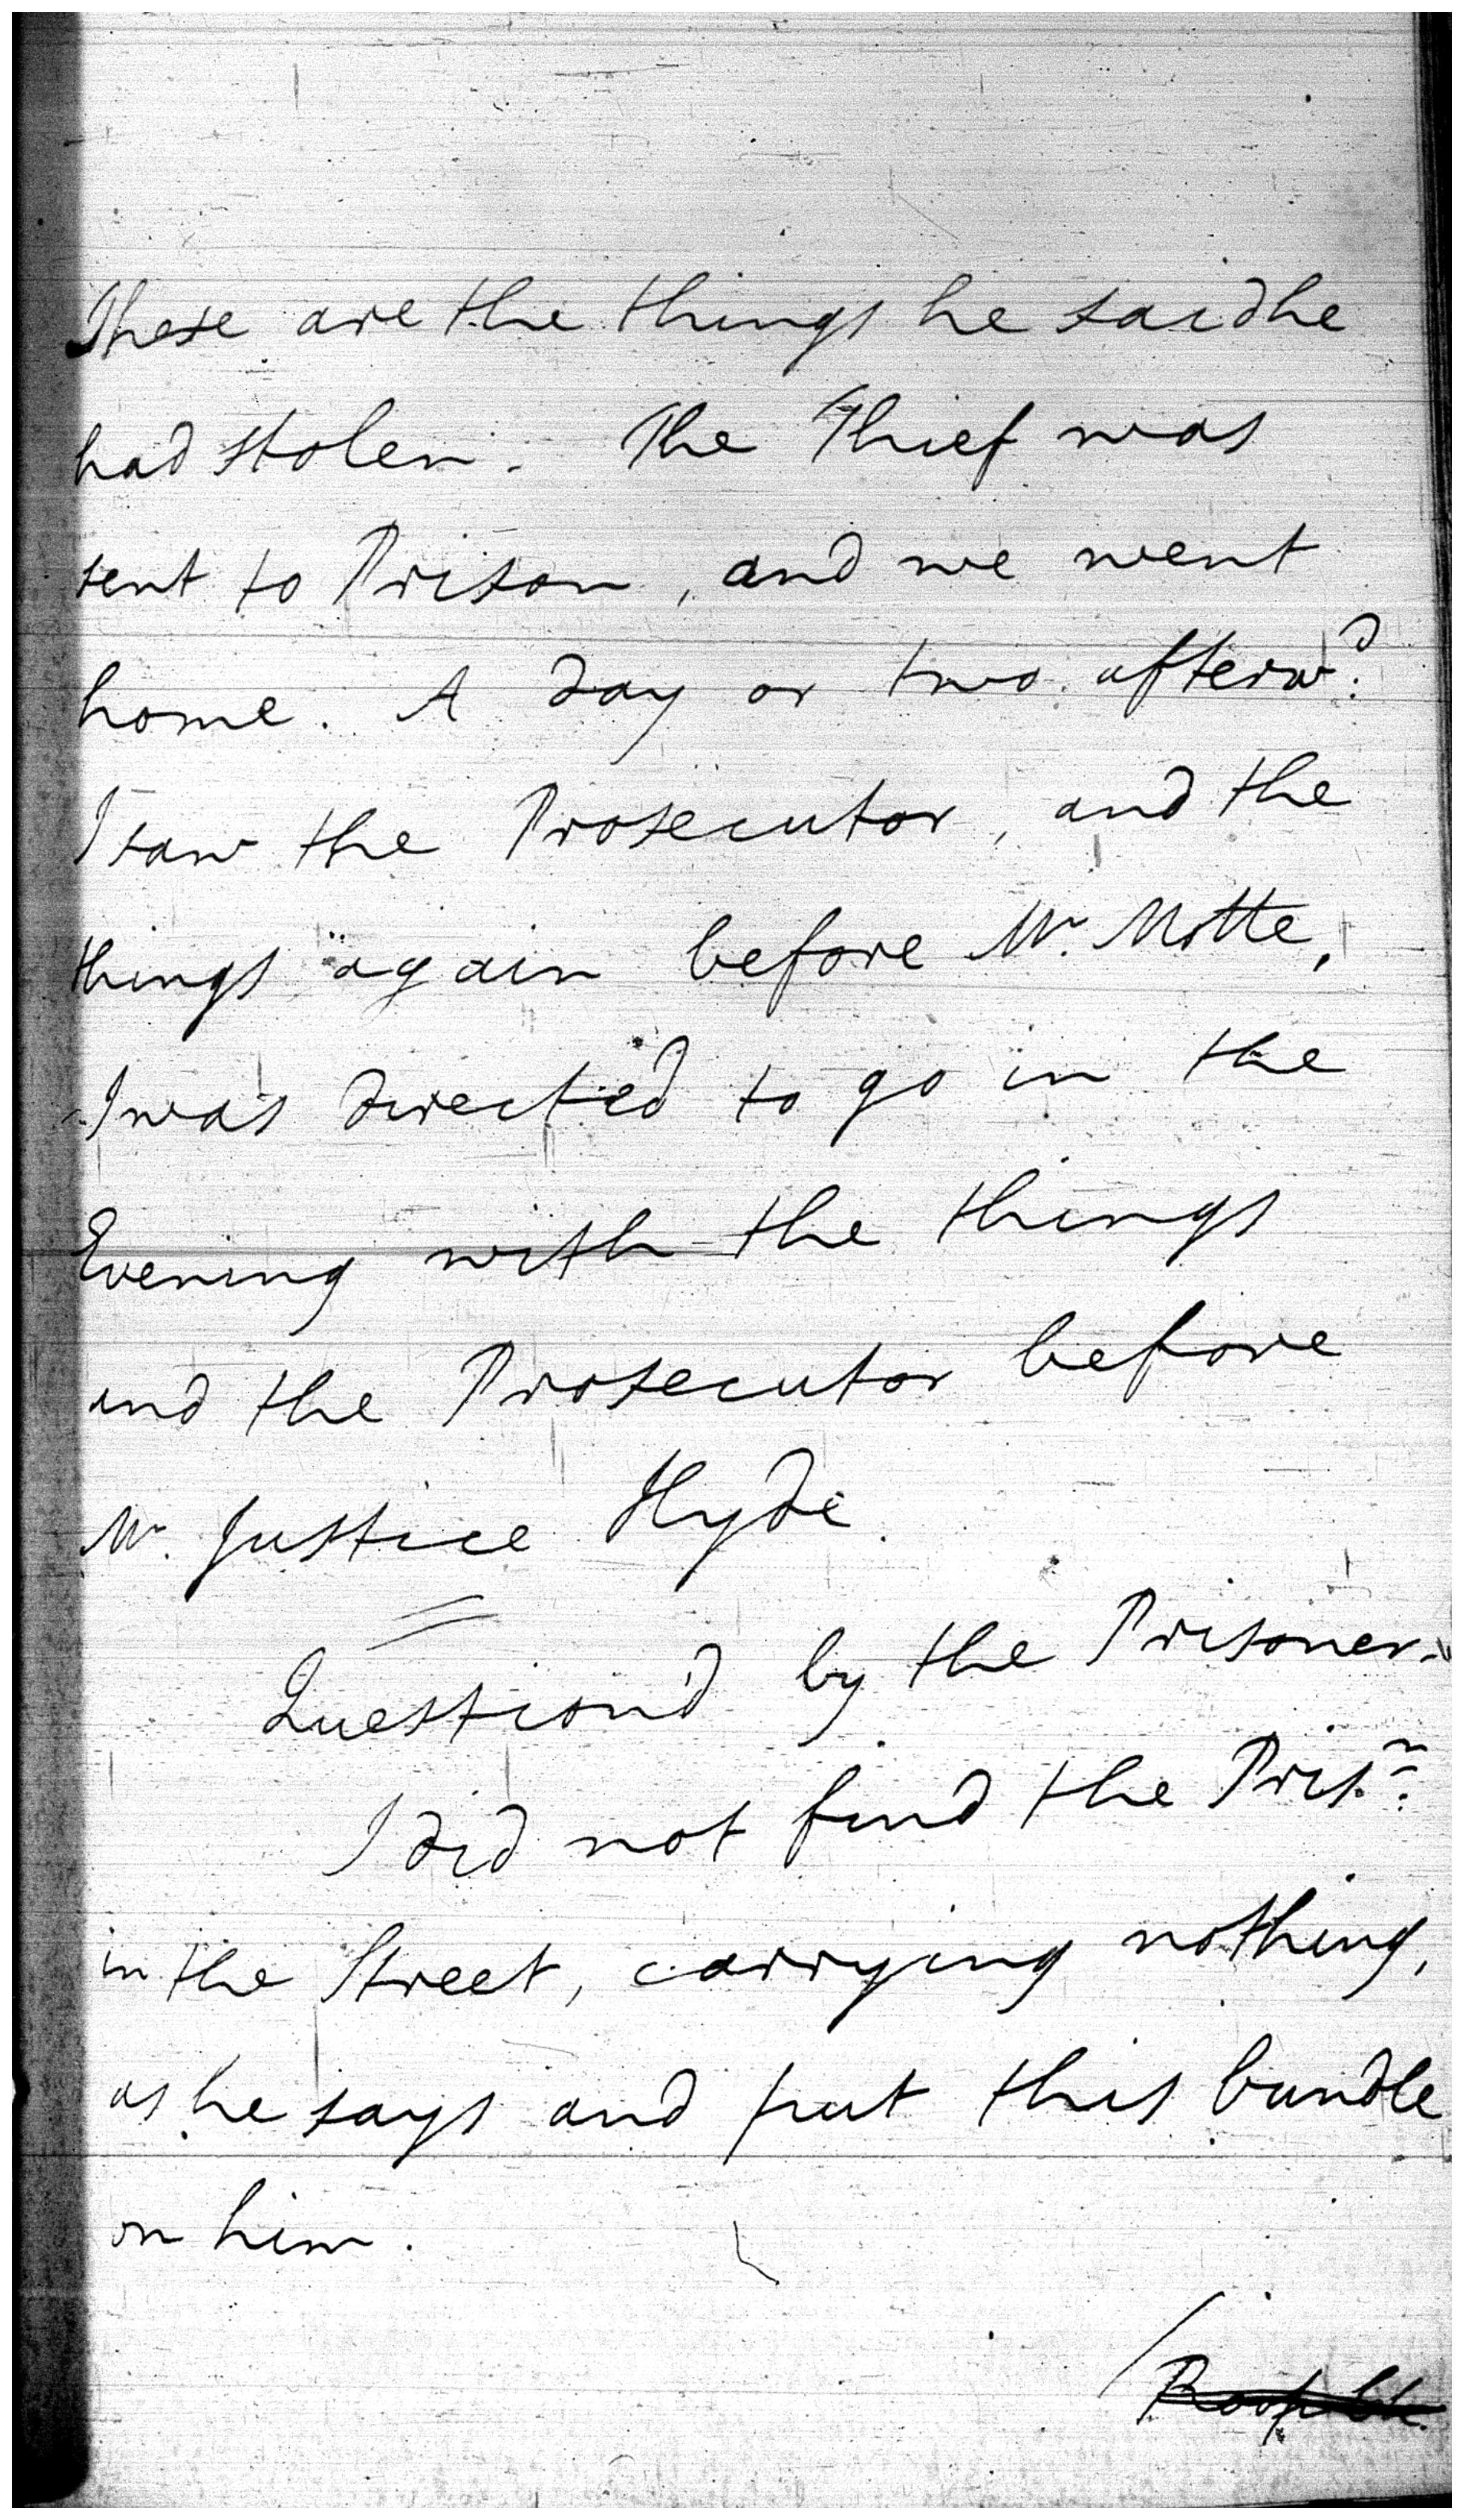 These are the things he said he
had stolen. The Thief was
sent to Prison, and we went
home. A day or two afterwd.
I saw the Prosecutor, and the
things again before Mr. Motte,
I was directed to go in the
Evening with the things
and the Prosecutor before
Mr. Justice Hyde.
Question'd by the Prisoner.
I did not find the Prisr.
in the Street, carrying nothing,
as he says and put this bundle
on him.